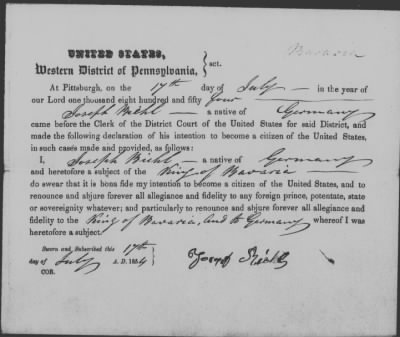 Bavaria
UNITED STATES,
Western District of Pennsylvania, } sct.
At Pittsburgh, on the 17th day of July in the year of
our Lord one thousand eight hundred and fifty four
Joseph Biehl a native of Germany
came before the Clerk of the District Court of the United States for said District, and
made the following declaration of his intention to become a citizen of the United States,
in such cases made and provided, as follows:
I, Joseph Biehl a native of Germany
and heretofore a subject of the King of Bavaria
do swear that it is bona fide my intention to become a citizen of the United States, and to
renounce and abjure forever all allegiance and fidelity to any foreign prince, potentate, state
or sovereignty whatever; and particularly to renounce and abjure forever all allegiance and
fidelity to the King of Bavaria, and to Germany whereof I was
heretofore a subject.
Sworn and Subscribed this 17th
day of July A. D. 1854
COR.
Joseph Biehl